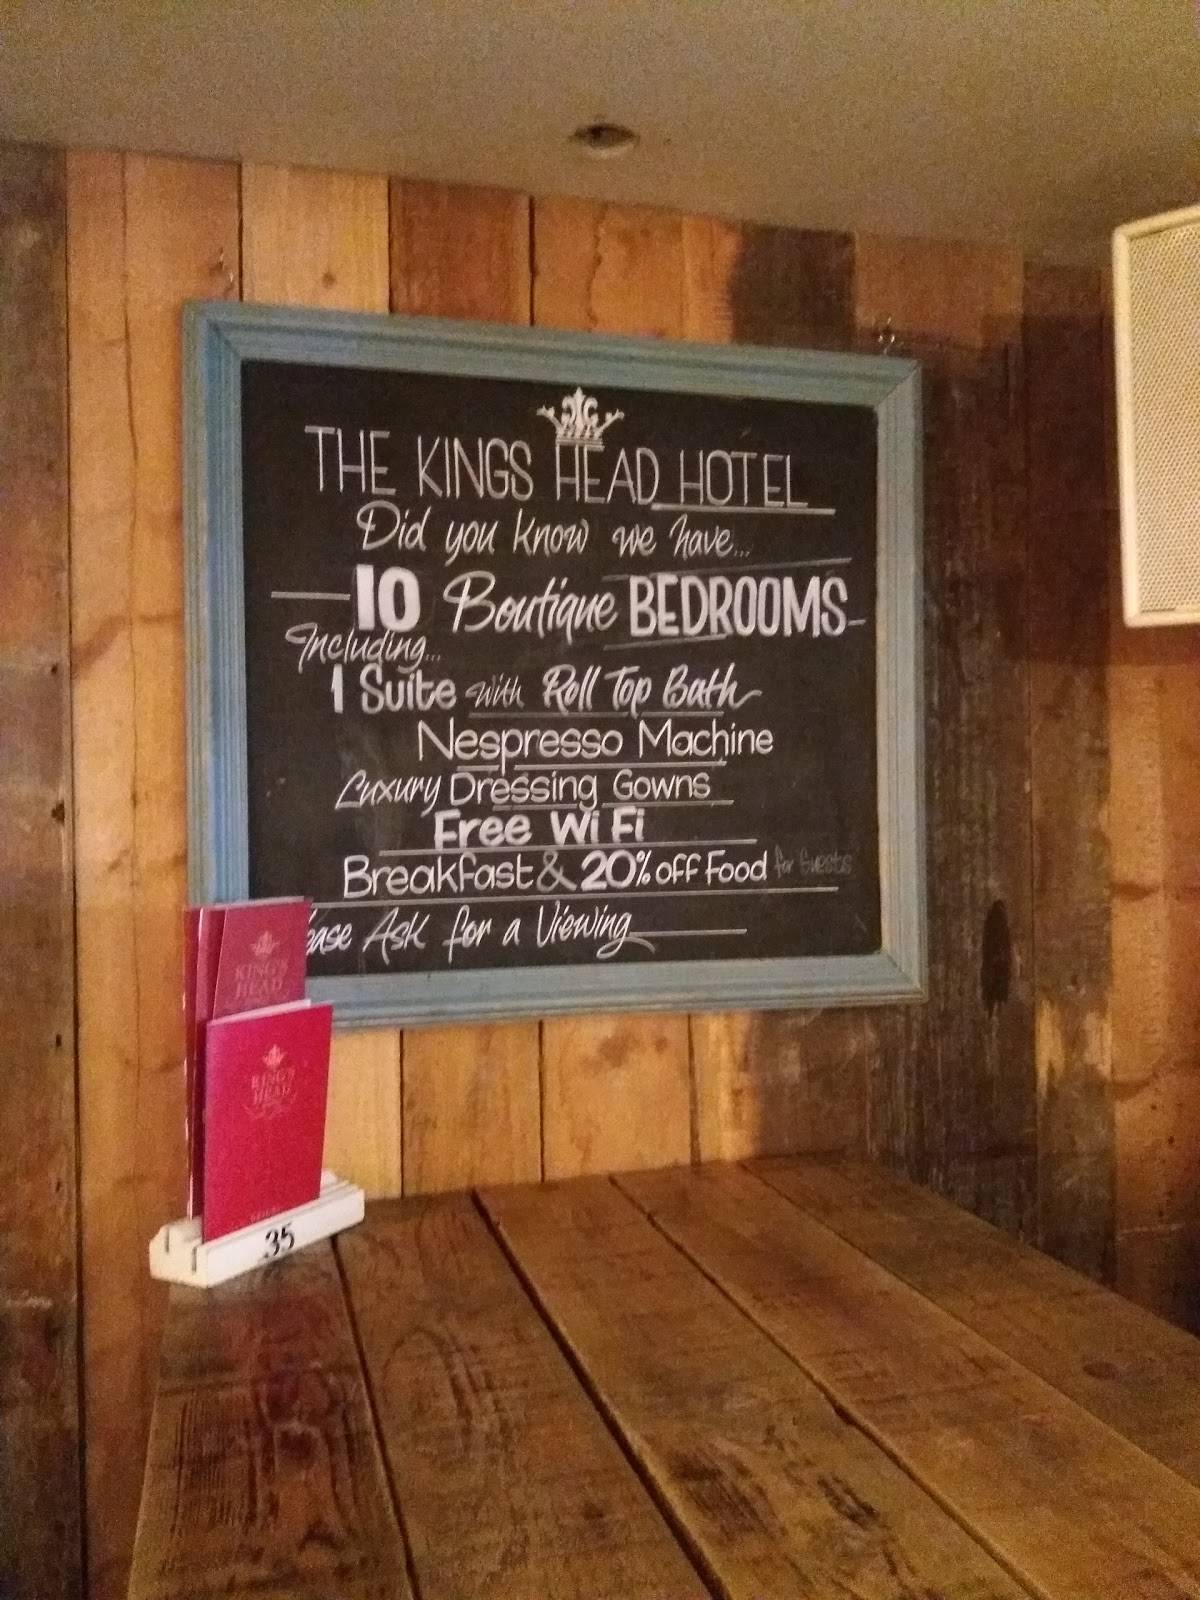 THE KINGS HEAD HOTEL
Did you know we have...
10 Boutique BEDROOMS
Including...
1 Suite with Roll Top Bath
Nespresso Machine
Luxury Dressing Gowns
Free WiFi
Breakfast & 20% off Food for Guests
ease Ask for a Viewing
KING'S
HEAD
KING'S
HEAD
35